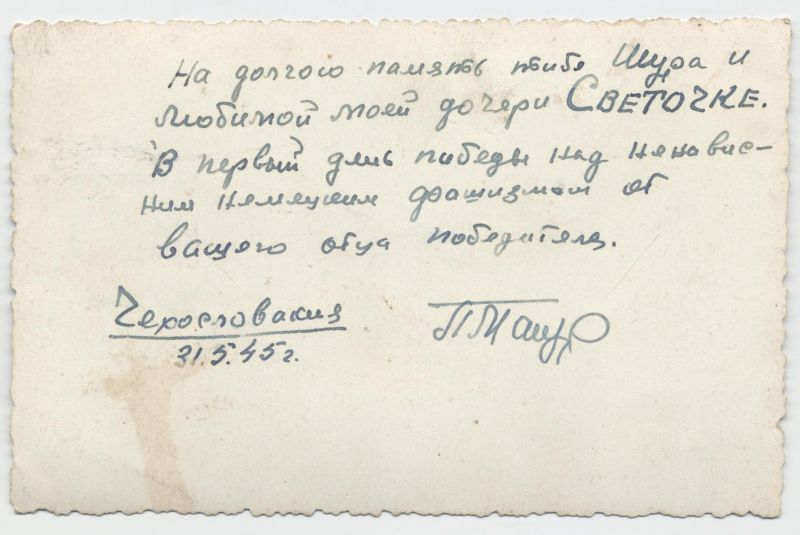 На долгою память тибе Шура и
любимой моей дочери СВЕТОЧКЕ.
В первый день победы над ненавис-
ним немецким фашизмом от
вашего отца победителя.
Чехословакия
31.5.45г.